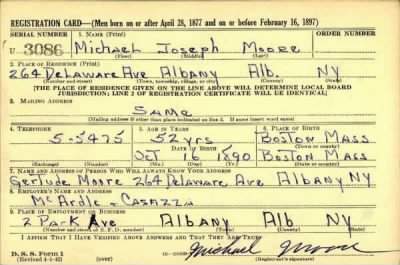 REGISTRATION CARD—(Men born on or after April 28, 1877 and on or before February 16, 1897)
SERIAL NUMBER 1. NAME (Print)
U 3086 Michael Joseph Moore
(First) (Middle) (Last)
2. PLACE OF RESIDENCE (Print)
264 Delaware Ave Albany Alb. NY
(Number and street) (Town, township, village, or city) (County) (State)
[THE PLACE OF RESIDENCE GIVEN ON THE LINE ABOVE WILL DETERMINE LOCAL BOARD
JURISDICTION; LINE 2 OF REGISTRATION CERTIFICATE WILL BE IDENTICAL]
3. MAILING ADDRESS
Same
[Mailing address if other than place indicated on line 2. If same insert word same]
4. TELEPHONE 5. AGE IN YEARS 6. PLACE OF BIRTH
5-5475 52 yrs Boston Mass
DATE OF BIRTH (Town or county)
Oct 16 1890 Boston Mass
(Exchange) (Number) (Mo.) (Day) (Yr.) (State or country)
7. NAME AND ADDRESS OF PERSON WHO WILL ALWAYS KNOW YOUR ADDRESS
Gertude Moore 264 Delaware Ave Albany NY
8. EMPLOYER'S NAME AND ADDRESS
McArdle + Casazza
9. PLACE OF EMPLOYMENT OR BUSINESS
2 Park Ave Albany Alb NY
(Number and street or R. F. D. number) (Town) (County) (State)
I AFFIRM THAT I HAVE VERIFIED ABOVE ANSWERS AND THAT THEY ARE TRUE.
D. S. S. Form 1 Michael Moore
(Revised 4-1-42) (over) (Registrant's signature)